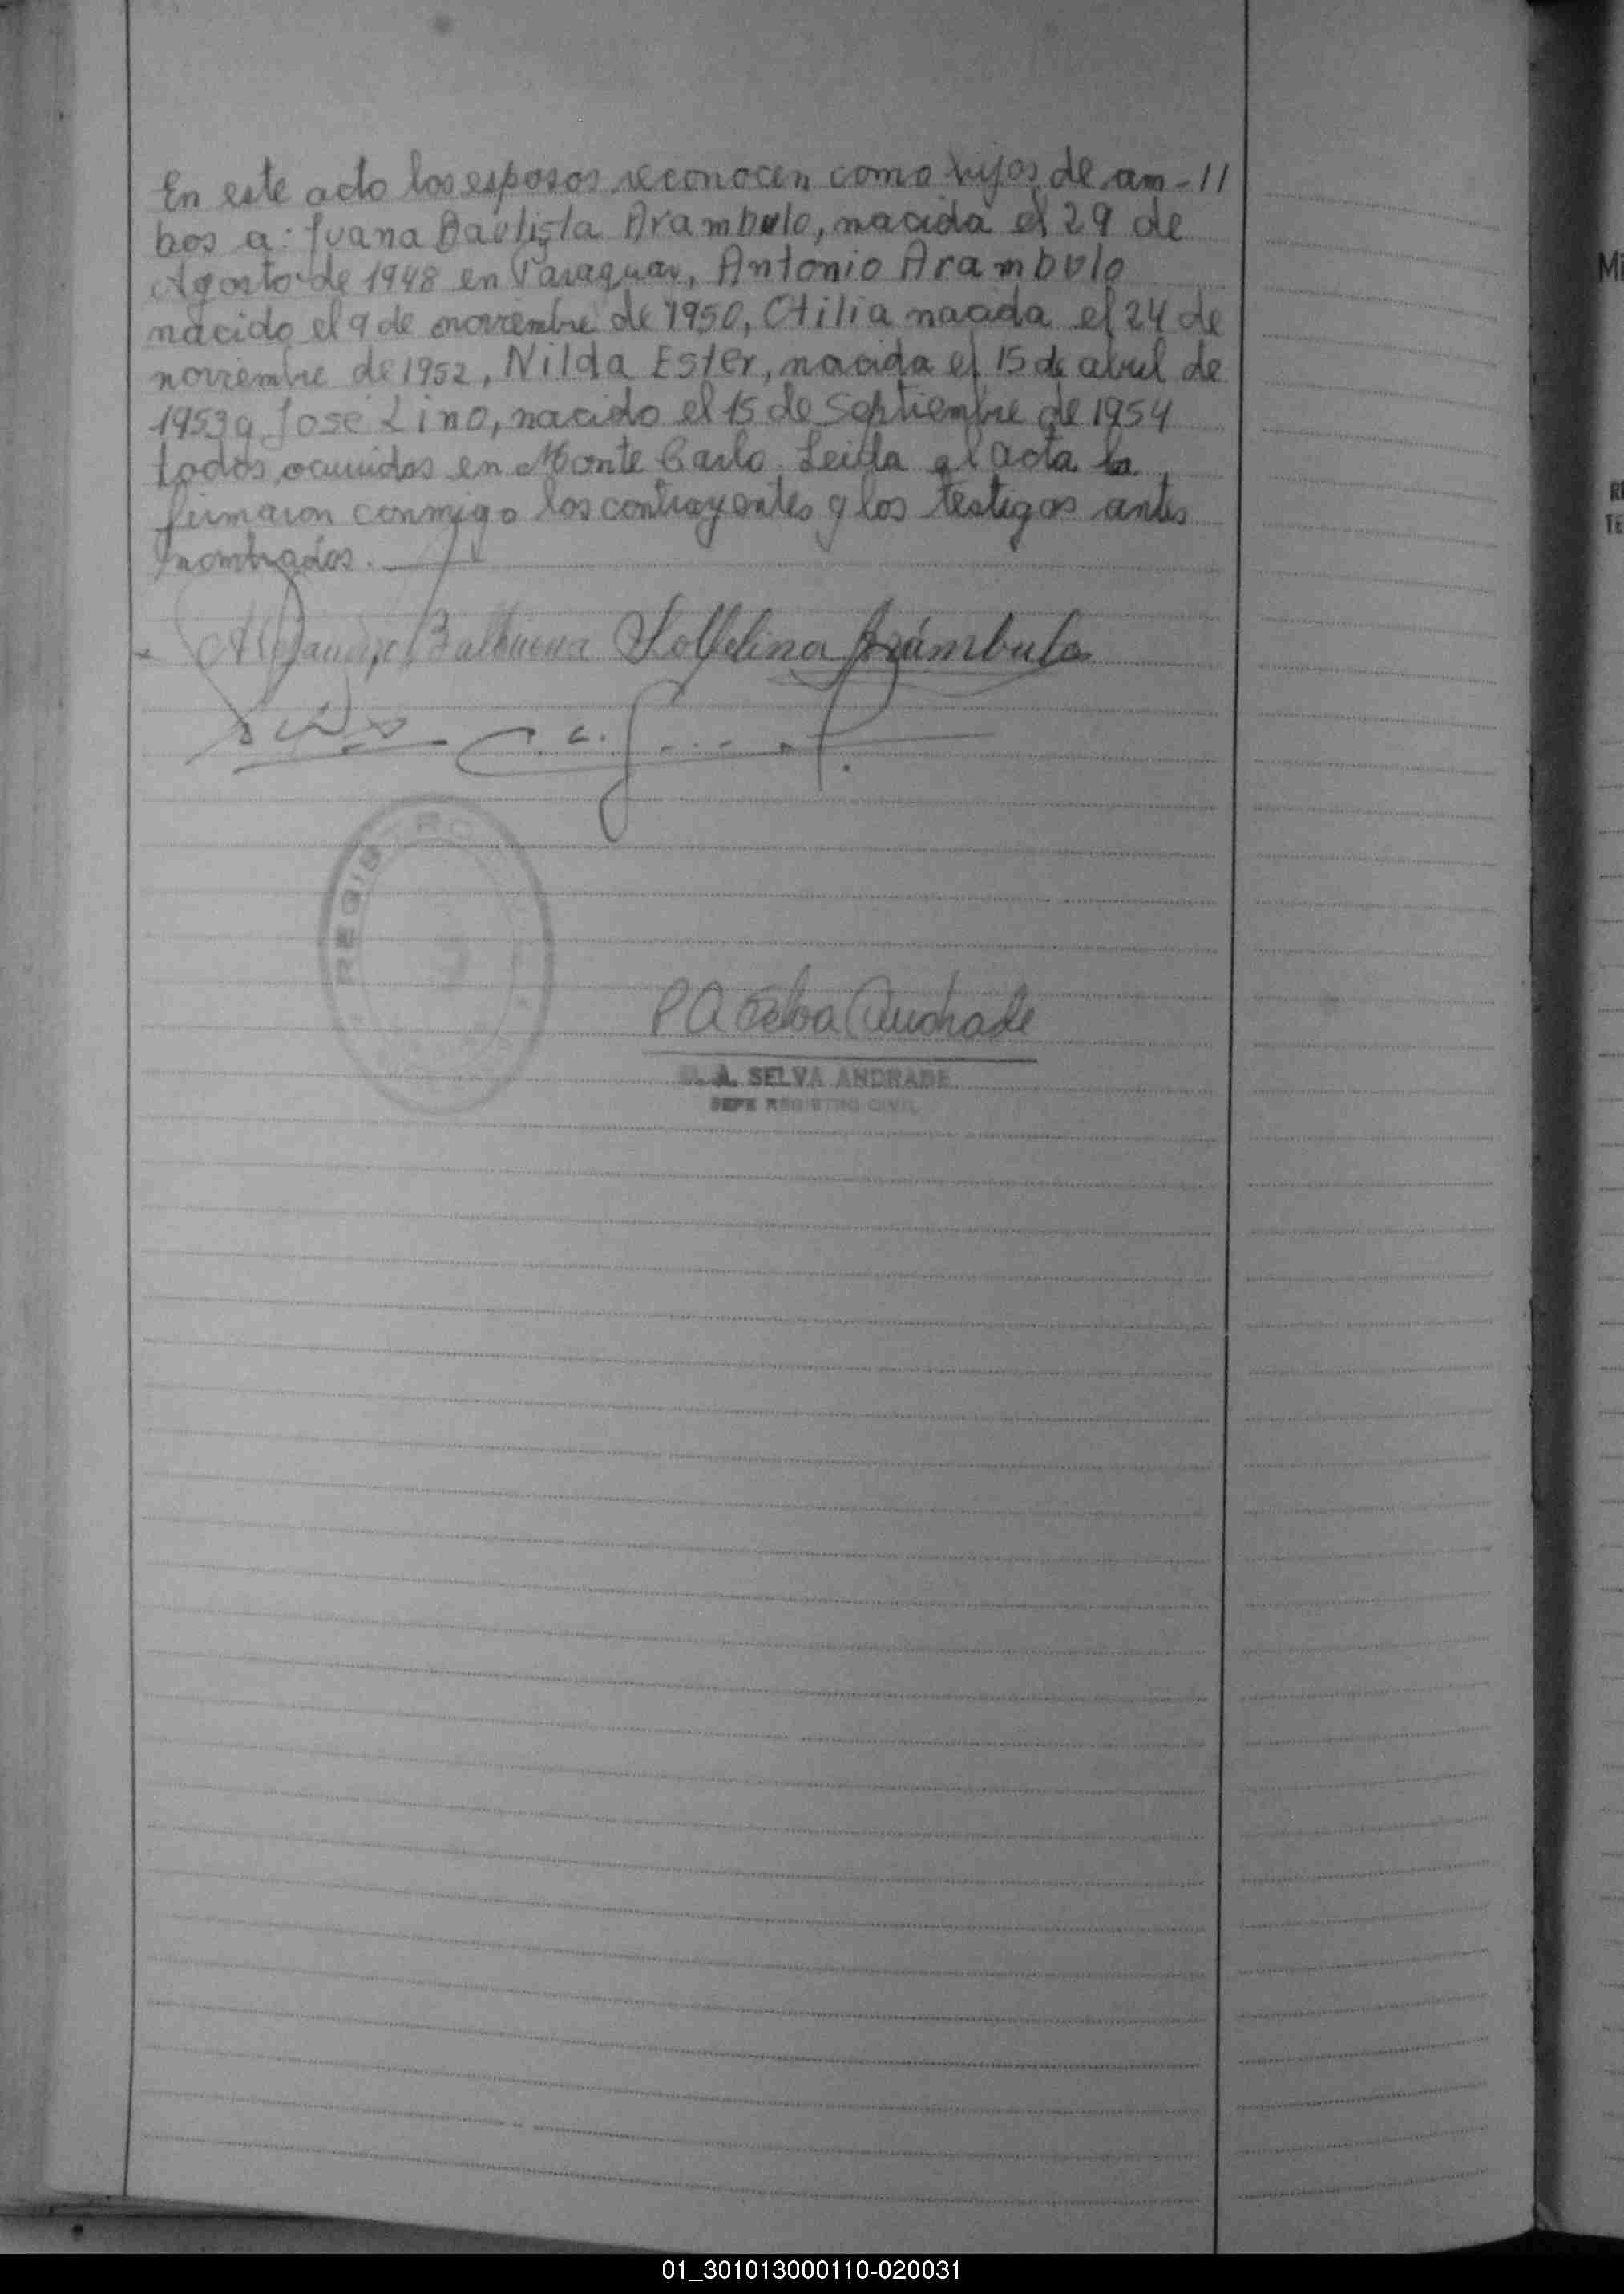 En este acto los esposos reconocen como hijos de am-11
bos a: Juana Bautista Arambulo, nacida el 29 de
Agosto de 1948 en Paraguay, Antonio Arambulo
nacido el 9 de noviembre de 1950, Otilia nacida el 24 de
noviembre de 1952, Nilda Ester, nacida el 15 de abril de
1953 y José Lino, nacido el 15 de Septiembre de 1954
todos ocurridos en Monte Carlo. Leida el acta la
firmaron conmigo los contrayentes y los testigos antes
nombrados.
Alejandro Balbuena Arámbulo
REGIS RO
P A Selva Andrade
A. SELVA ANDRADE
JEFE REGISTRO CIVIL
Mi
RE
TE
01_301013000110-020031